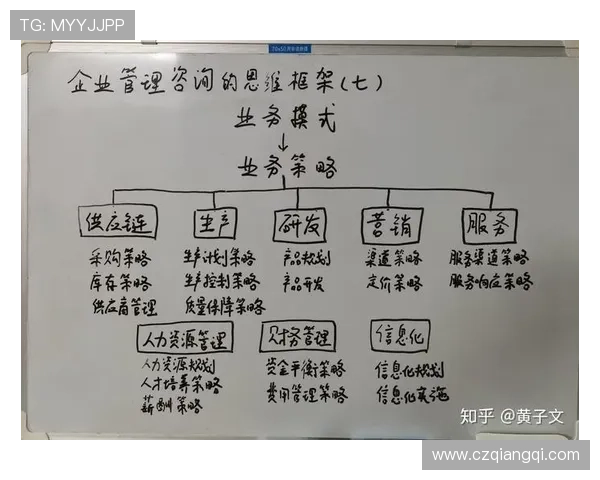 TG: MYYJJPP
企业管理咨询的思维框架(七)
业务模式
↓
业务策略
供应链 生产 研发 营销 服务
采购策略 生产计划策略 产品规划 渠道策略 服务渠道策略
库存策略 生产控制策略 产品开发 定价策略 服务响应策略
供应商管理 质量保障策略
人力资源管理 财务管理 信息化
人力资源规划 资金平衡策略 信息化规划
人才培养策略 费用管理策略 信息化实施
薪酬策略
知乎 @黄子文
www.czqiangqi.com